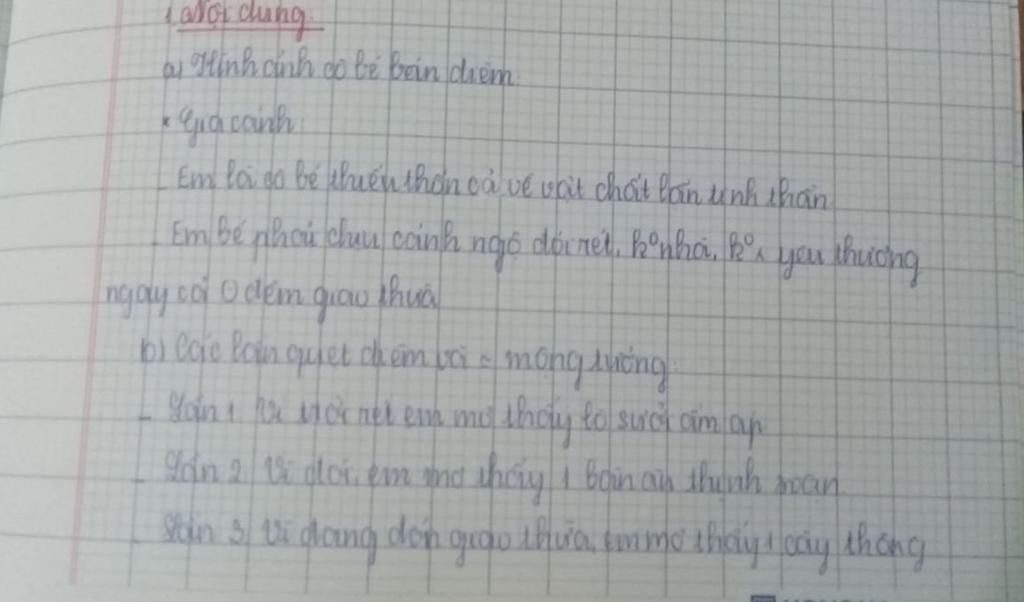 1 Nội dung:
a) Hình ảnh cô bé bán diêm.
* Gia cảnh:
- Em là cô bé thiếu thốn cả về vật chất lẫn tinh thần
- Em bé phải chịu cảnh ngộ đói rét, k° nhà, k° yêu thương
ngay cả ở đêm giao thừa
b) Các lần quẹt diêm và = mộng tưởng:
- Lần 1 Vì trời rét em mơ thấy lò sưởi ấm áp
- Lần 2 Vì đói, em mơ thấy 1 bàn ăn thịnh soạn
- Lần 3 Vì đang đón giao thừa, em mơ thấy 1 cây thông